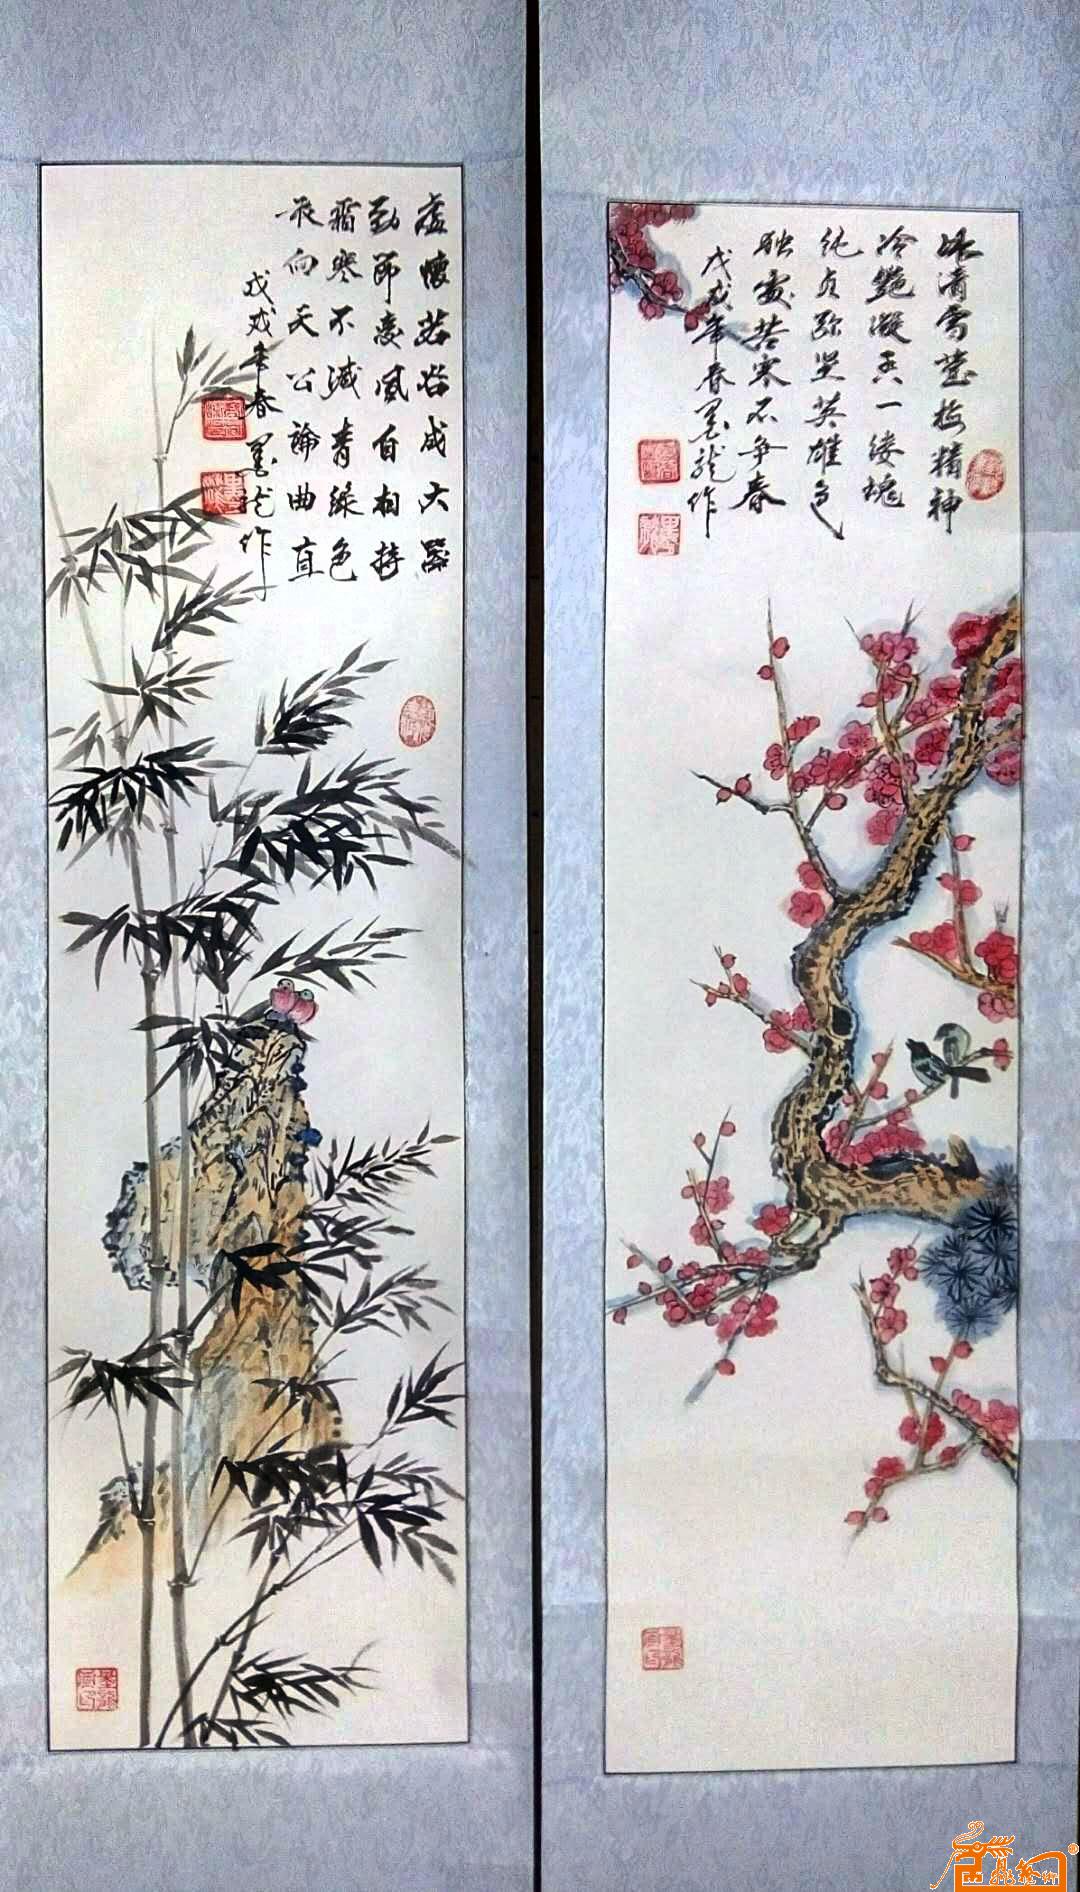 虚怀若谷成大器
劲节凌风自相持
霜寒不减青绿色
我向天公论曲直
戊戌年春墨龙作
冰清雪莹梅精神
冷艳凝香一缕魂
纯贞弥坚英雄色
独处苦寒不争春
戊戌年春墨龙作